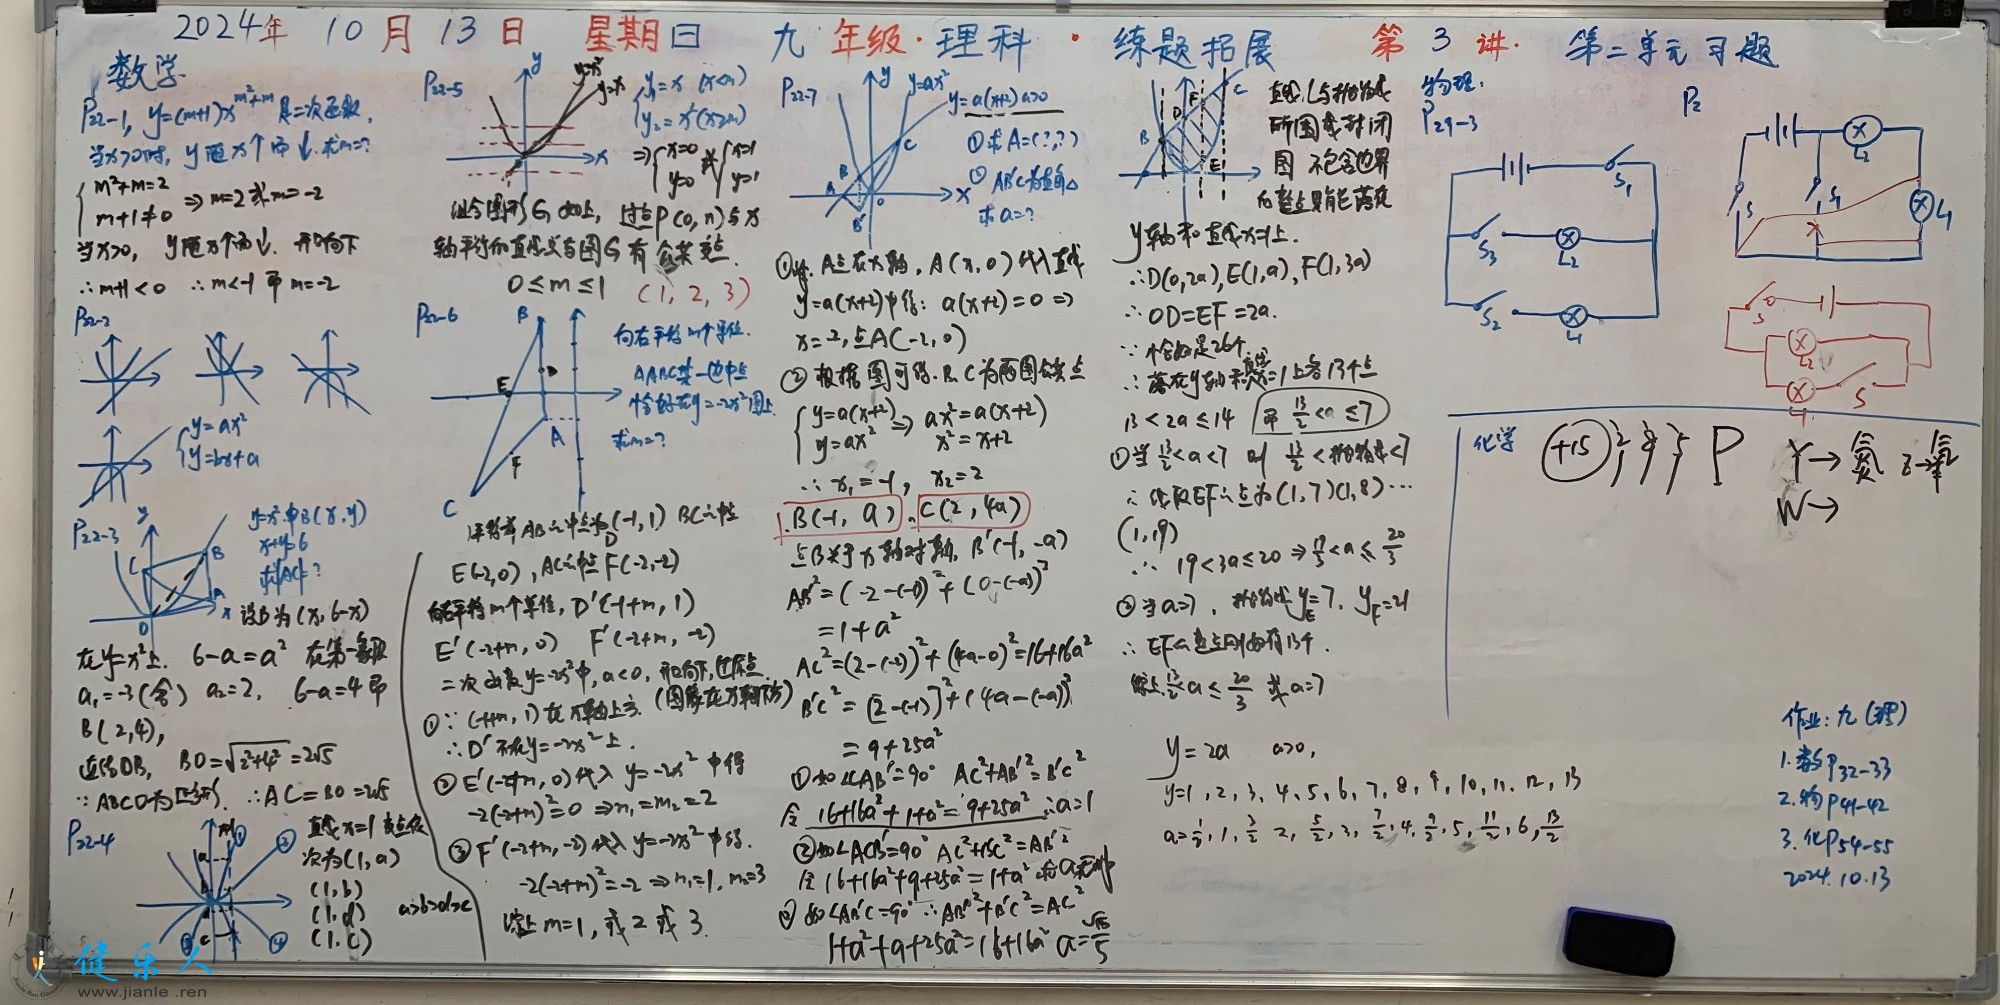 2024年 10月 13日 星期日 九年级·理科·练题拓展 第3讲· 第二单元习题
数学
P22-1, y=(m+1)x^(m²+m) 是二次函数,
当x>0时, y随x↑而↓. 求m=?
{ m²+m=2
m+1≠0 ⇒ m=2或m=-2
当x>0, y随x个而↓. 开口向下
∴m+1<0 ∴m<-1 即m=-2
P22-2
{ y=ax²
y=bx+a
P22-3
y=x²中B(x,y)
x+y=6
求AC=?
y
C
B
A
x
O
设B为(x, 6-x)
在y=x²上. 6-a=a² 在第一象限
a₁=-3(舍) a₂=2, 6-a=4 即
B(2,4),
连结OB, BO=√2²+4²=2√5
∵ABCO为矩形. ∴AC=BO=2√5
P22-4
直线x=1
次为(1, a)
(1, b)
(1, d)
(1, c)
a>b>d>c
P22-5
y=x²
y=x
y
x
{ y₁=x (x<m)
y₂=x²(x≥m)
⇒{ x=0 或 { x=1
y=0 y=1
组合图形G如上, 过点P(0, n)与x
轴平行的直线与图G有公共点.
0≤m≤1 (1, 2, 3)
P22-6
B
D
E
A
F
C
向右平移m个单位.
△ABC某一边中点
恰好在y=-2x²图上.
求m=?
AB之中点为(-1, 1) BC之中点
D
E(-2,0), AC之中点F(-2,-2)
向右平移m个单位, D'(-1+m, 1)
E'(-2+m, 0) F'(-2+m, -2)
二次函数y=-2x²中, a<0, 开口向下,过原点.
(图象在x轴下方)
①∵(-1+m, 1)在x轴上方.
∴D'不在y=-2x²上.
② E'(-2+m, 0)代入 y=-2x²中得
-2(-2+m)²=0 ⇒m₁=m₂=2
③ F'(-2+m, -2)代入y=-2x²中得.
-2(-2+m)²=-2 ⇒m₁=1, m₂=3
综上 m=1, 或2 或3.
P22-7
y
y=ax²
y=a(x+2) a>0
C
B
A
O
x
B'
①求A=(?,?)
② AB'C为直角△
求a=?
A点在x轴, A(x, 0)代入直线
y=a(x+2)中得: a(x+2)=0 ⇒
x=-2, 点A(-2, 0)
② 根据图可得. B、C为两图公共点
{ y=a(x+2) ⇒ ax²=a(x+2)
y=ax² x²=x+2
∴ x₁=-1, x₂=2
B(-1, a) . C(2, 4a)
点B关于x轴对称, B'(-1, -a)
AB'²=(-2-(-1))²+(0-(-a))²
=1+a²
AC²=(2-(-2))²+(4a-0)²=16+16a²
B'C²=[2-(-1)]²+(4a-(-a))²
=9+25a²
①如∠CAB'=90° AC²+AB'²=B'C²
令 16+16a²+1+a²=9+25a² ∴a=1
②如∠ACB'=90° AC²+B'C²=AB'²
令16+16a²+9+25a²=1+a²
③如∠AB'C=90° ∴AB'²+B'C²=AC²
1+a²+9+25a²=16+16a² a=√15/5
F
C
D
B
E
直线L与抛物线
所围成封闭
图 不包含边界
的整点只能落在
y轴和直线x=1上.
∴D(0,2a), E(1,a), F(1,3a)
∴OD=EF=2a.
∵恰好是26个.
∴落在y轴和直线x=1上各13个点
13<2a≤14 即 13/2<a≤7
①当13/2<a<7 时 13/2<抛物线<7
∴线段EF之点为(1,7)(1,8)…
(1,19)
∴ 19<3a≤20 ⇒ 19/3<a≤20/3
②当a=7, 抛物线yE=7. yF=21
∴EF的整点刚好有13个.
综上 13/2<a≤20/3 或a=7
y=2a a>0,
y=1, 2, 3, 4, 5, 6, 7, 8, 9, 10, 11, 12, 13
a=1/2, 1, 3/2 2, 5/2, 3, 7/2, 4, 9/2, 5, 11/2, 6, 13/2
物理:
P29-3
S₁
S₃
L₂
S₂
L₁
P2
L₂
S
S₁
L₁
S
L₂
L₁
S
化学
+15 2 8 5 P
Y→氮 Z→氧
W→
作业: 九(理)
1.数P32-33
2.物P41-42
3.化P54-55
2024.10.13
健乐人
www.jianle.ren